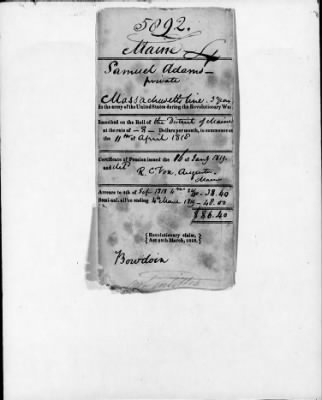 5892.
Maine
Samuel Adams
private
Massachusetts line 3 years
in the army of the United States during the Revolutionary War
Inscribed on the Roll of the District of Maine
at the rate of 8 Dollars per month, to commence on
the 11th of April 1818
Certificate of Pension issued the 16 of Jany 1819
and
R. C. Vose, Augusta
Maine
Arrears to 4th of Sept 1818 38.40
Semi-anl. all'ce ending 4th March 1819 48.00
$86.40
Revolutionary claim,
Act 18th March, 1818.
Bowdoin